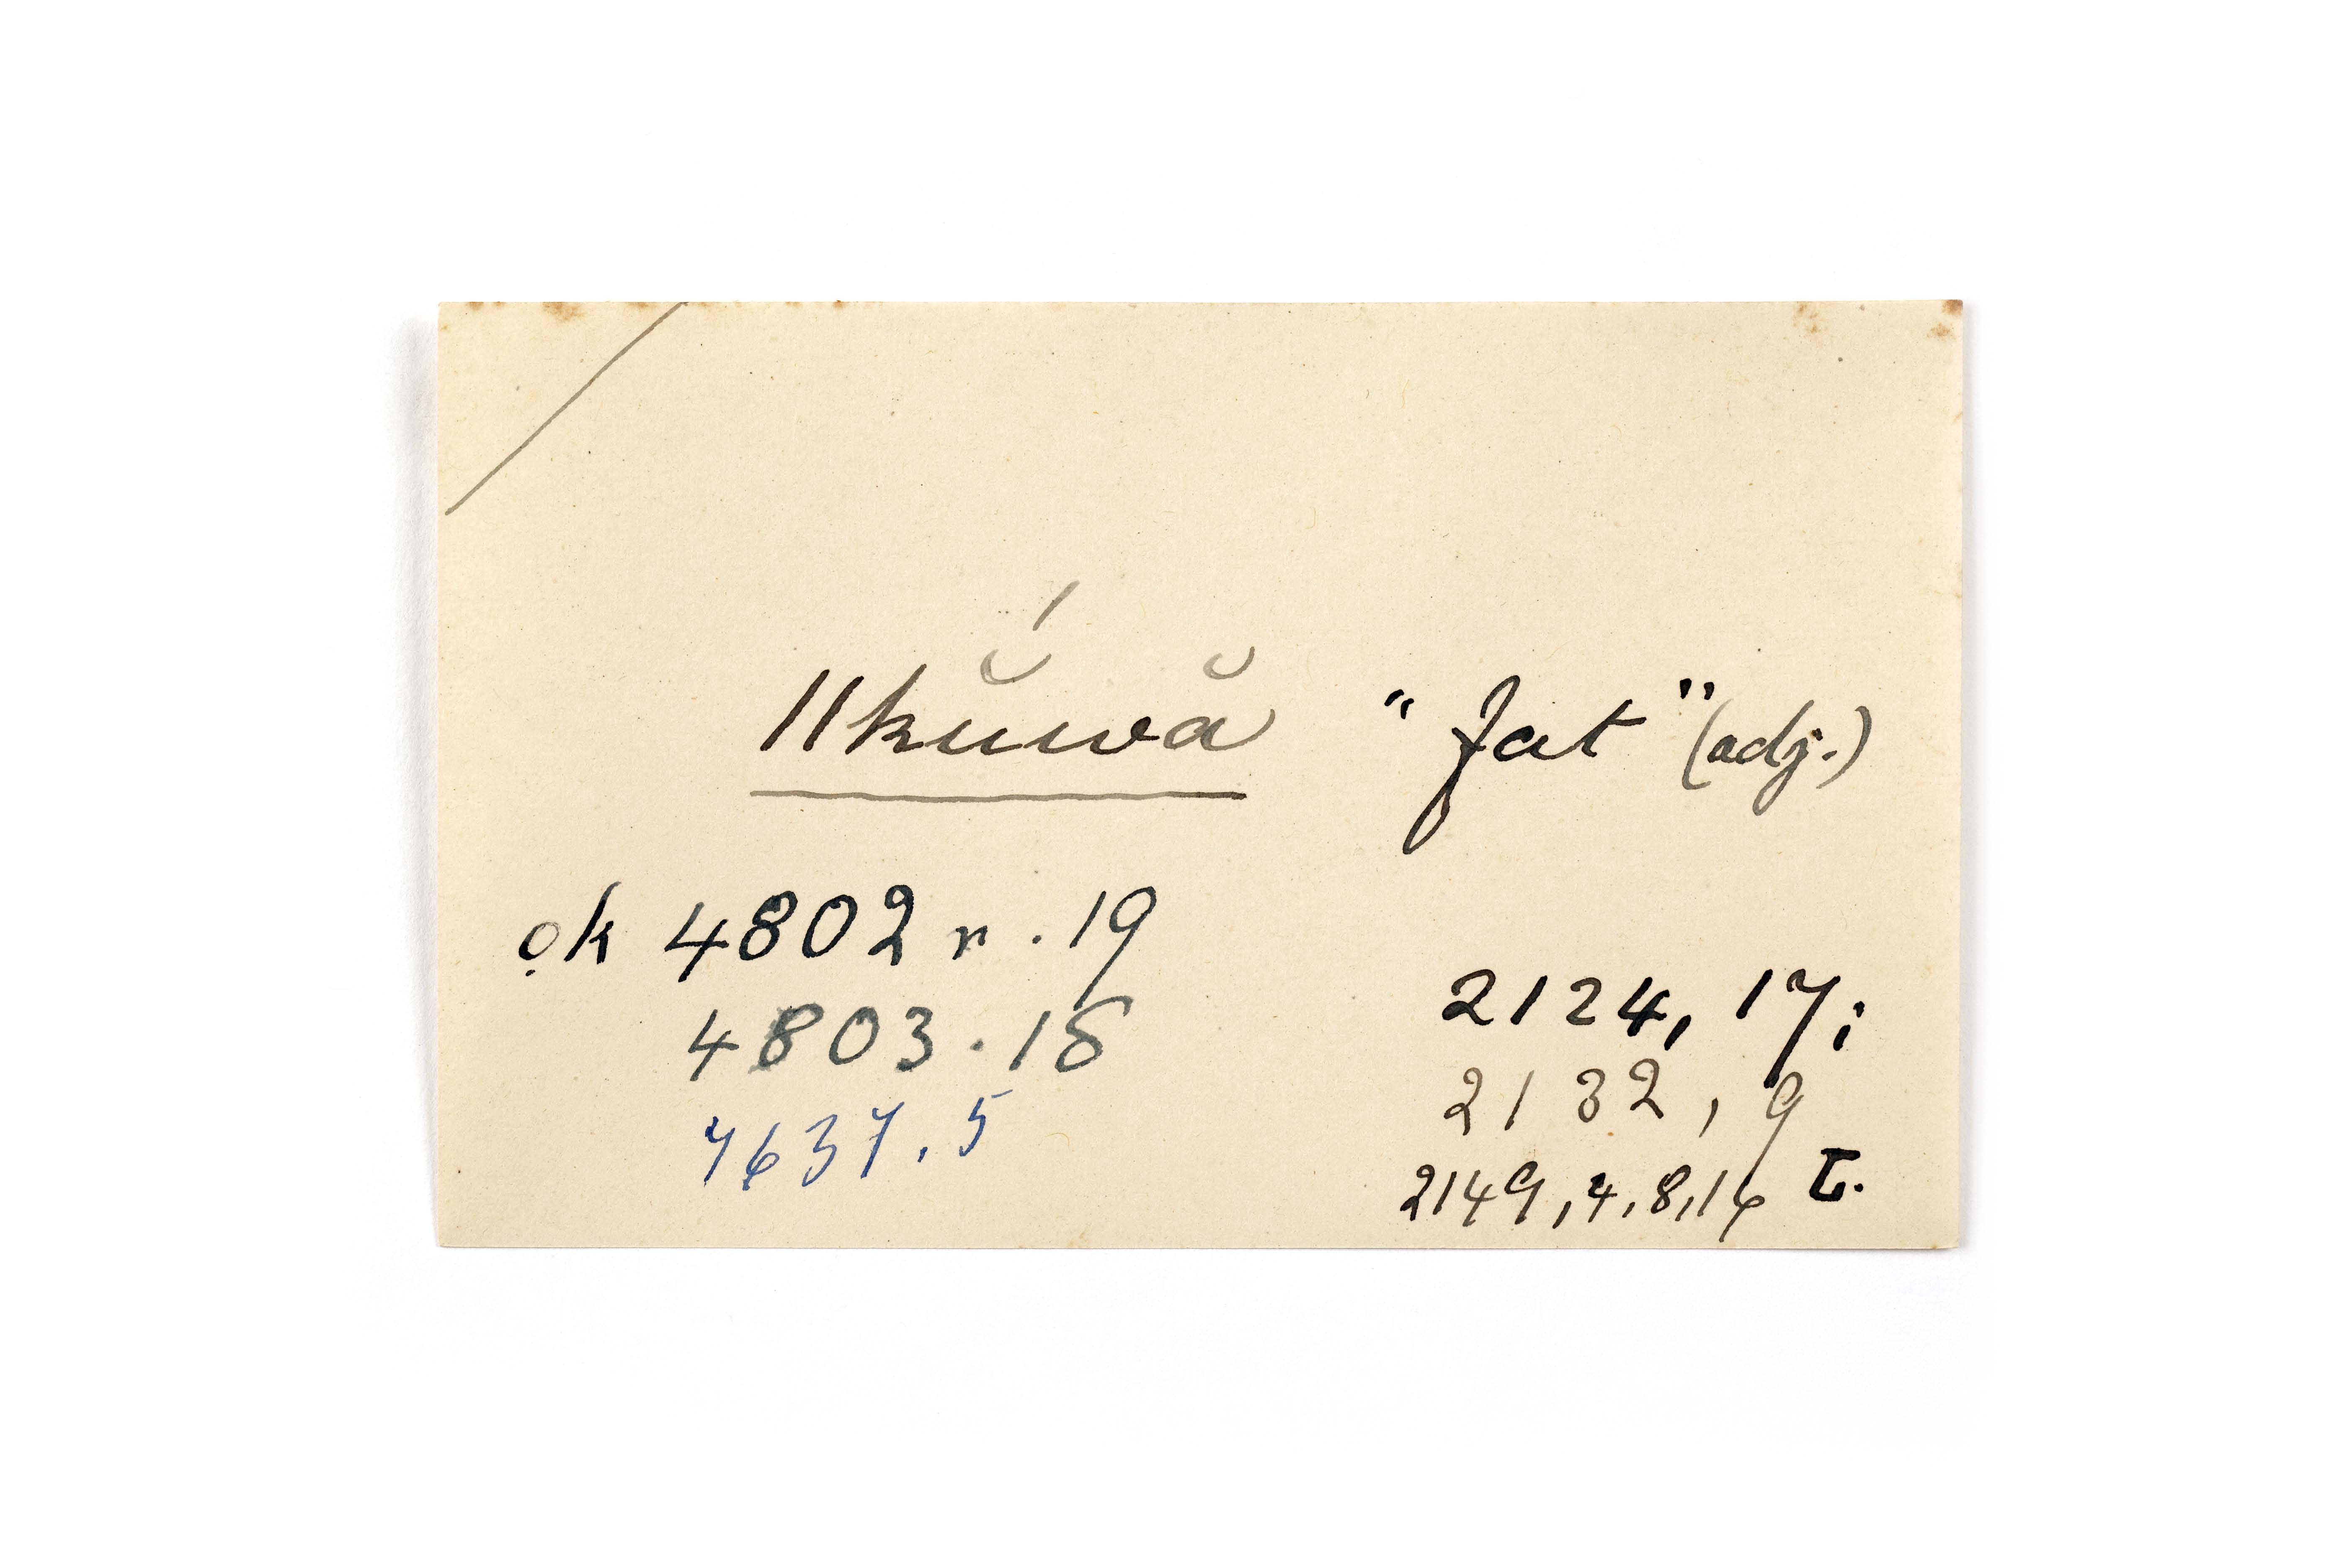 ǁkŭ́wă "fat" (adj.)
ọk 4802 r. 19
4803. 18
7637. 5
2124, 17;
2132, 9
2149, 4, 8, 16 T.